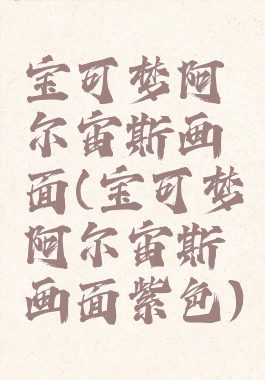 宝可梦阿
尔宙斯画
面(宝可梦
阿尔宙斯
画面紫色)